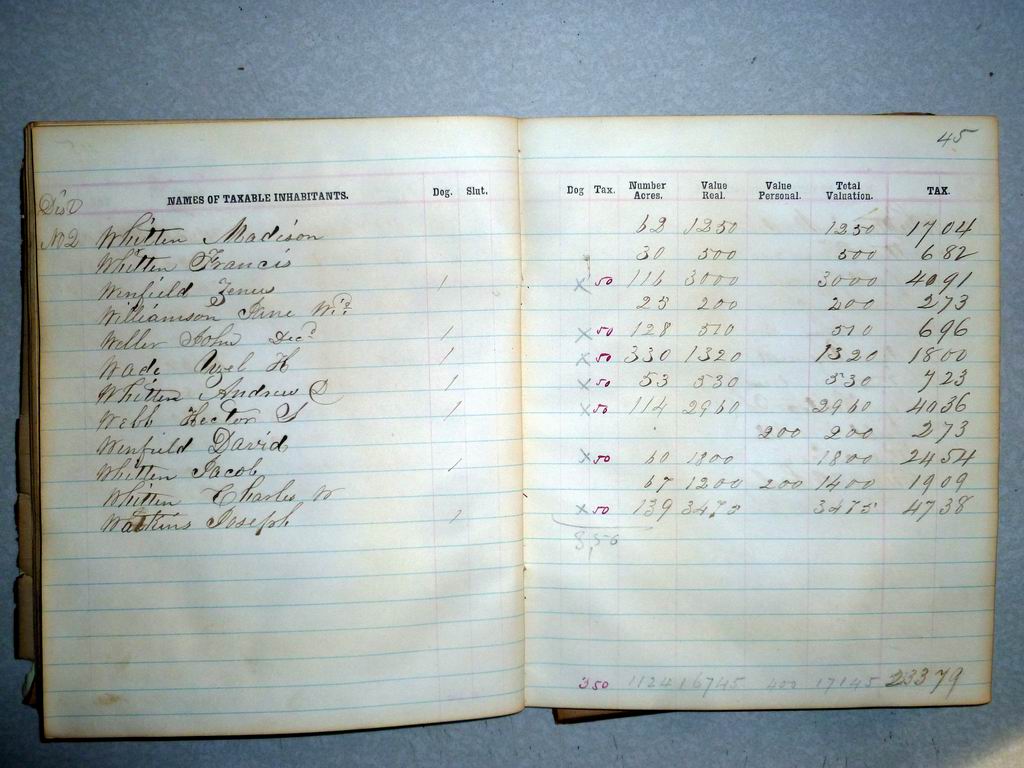 45
NAMES OF TAXABLE INHABITANTS. Dog. Slut. Dog Tax. Number Acres. Value Real. Value Personal. Total Valuation. TAX.
Dist
No 2 Whitten Madison 62 1250 1250 1704
Whitten Francis 30 500 500 682
Winfield Zenus 1 x 50 116 3000 3000 4091
Williamson Jane Wid 25 200 200 273
Weller John Decd 1 x 50 128 510 510 696
Wade Uzel H 1 x 50 330 1320 1320 1800
Whitten Andrew D 1 x 50 53 530 530 723
Webb Hector S 1 x 50 114 2960 2960 4036
Winfield David 200 200 273
Whitten Jacob 1 x 50 60 1800 1800 2454
Whitten Charles W 67 1200 200 1400 1909
Watkins Joseph 1 x 50 139 3475 3475 4738
3,50
350 1124 16745 400 17145 23379